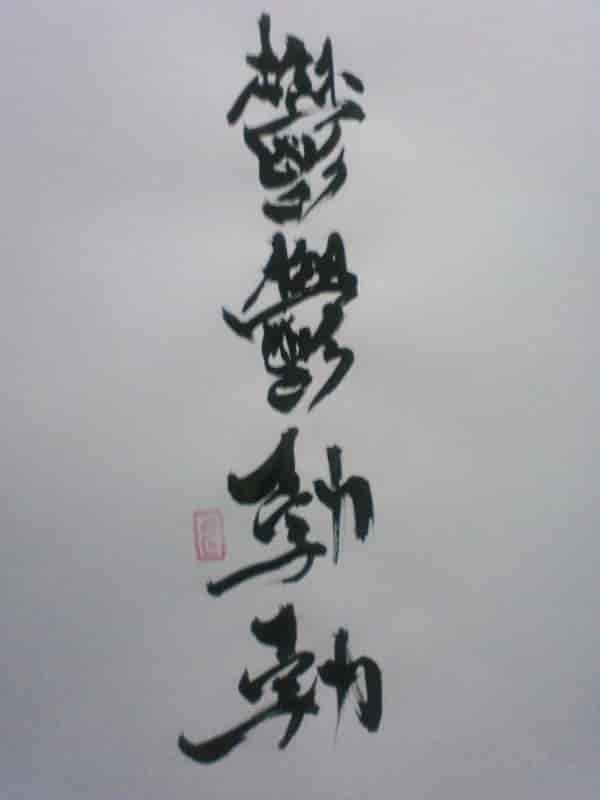 鬱鬱勃勃